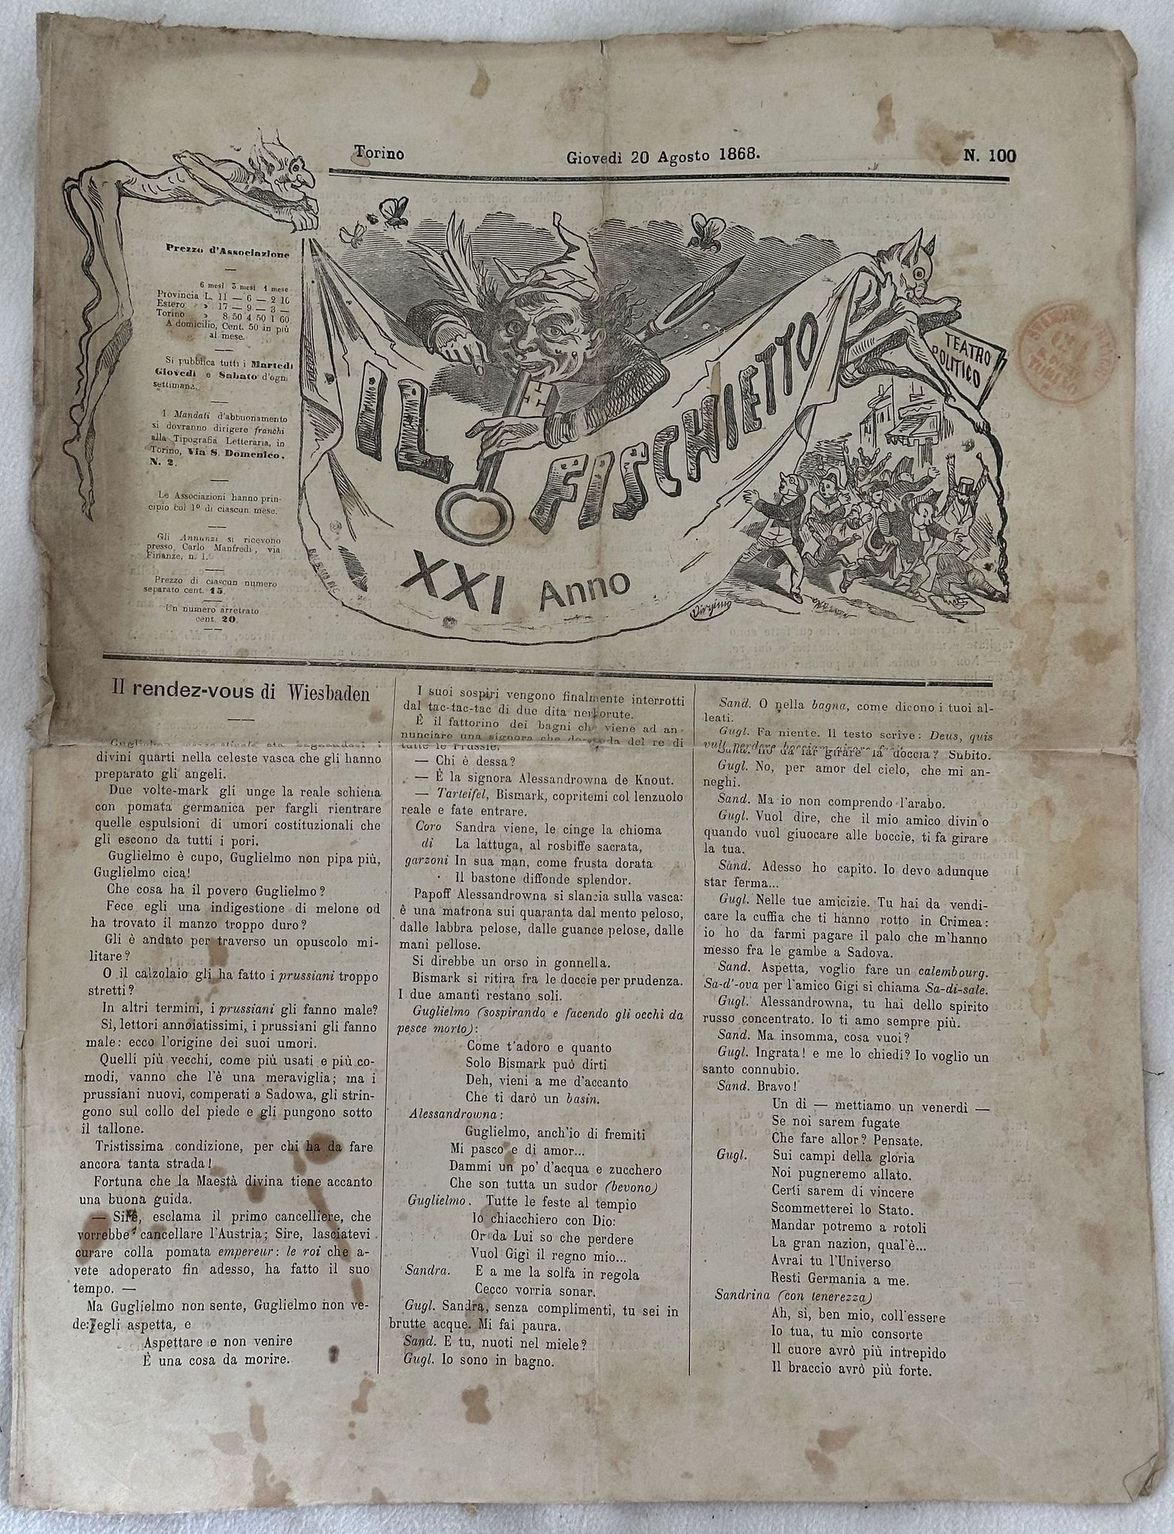 Torino
Giovedì 20 Agosto 1868.
N. 100
Prezzo d'Associazione
6 mesi 3 mesi 1 mese
Provincia L. 11 — 6 — 2 10
Estero » 17 — 9 — 3 —
Torino » 8 50 4 50 1 60
A domicilio, Cent. 50 in più
al mese.
Si pubblica tutti i Martedì
Giovedì e Sabato d'ogni
settimana.
I Mandati d'abbuonamento
si dovranno dirigere franchi
alla Tipografia Letteraria, in
Torino, Via S. Domenico,
N. 2.
Le Associazioni hanno prin-
cipio col 1º di ciascun mese.
Gli Annunzi si ricevono
presso Carlo Manfredi, via
Finanze, n. 1.
Prezzo di ciascun numero
separato cent. 15.
Un numero arretrato
cent. 20
IL FISCHIETTO
XXI Anno
TEATRO
POLITICO
Il rendez-vous di Wiesbaden
divini quarti nella celeste vasca che gli hanno
preparato gli angeli.
Due volte-mark gli unge la reale schiena
con pomata germanica per fargli rientrare
quelle espulsioni di umori costituzionali che
gli escono da tutti i pori.
Guglielmo è cupo, Guglielmo non pipa più,
Guglielmo cica!
Che cosa ha il povero Guglielmo?
Fece egli una indigestione di melone od
ha trovato il manzo troppo duro?
Gli è andato per traverso un opuscolo mi-
litare?
O il calzolaio gli ha fatto i prussiani troppo
stretti?
In altri termini, i prussiani gli fanno male?
Sì, lettori annoiatissimi, i prussiani gli fanno
male: ecco l'origine dei suoi umori.
Quelli più vecchi, come più usati e più co-
modi, vanno che l'è una meraviglia; ma i
prussiani nuovi, comperati a Sadowa, gli strin-
gono sul collo del piede e gli pungono sotto
il tallone.
Tristissima condizione, per chi ha da fare
ancora tanta strada!
Fortuna che la Maestà divina tiene accanto
una buona guida.
— Sire, esclama il primo cancelliere, che
vorrebbe cancellare l'Austria; Sire, lasciatevi
curare colla pomata empereur: le roi che a-
vete adoperato fin adesso, ha fatto il suo
tempo. —
Ma Guglielmo non sente, Guglielmo non ve-
de: egli aspetta, e
Aspettare e non venire
È una cosa da morire.
I suoi sospiri vengono finalmente interrotti
dal tac-tac-tac di due dita nerborute.
È il fattorino dei bagni che viene ad an-
nunciare una signora che domanda del re di
tutte le Prussie.
— Chi è dessa?
— È la signora Alessandrowna de Knout.
— Tarteifel, Bismark, copritemi col lenzuolo
reale e fate entrare.
Coro Sandra viene, le cinge la chioma
di La lattuga, al rosbiffe sacrata,
garzoni In sua man, come frusta dorata
Il bastone diffonde splendor.
Papoff Alessandrowna si slancia sulla vasca:
è una matrona sui quaranta dal mento peloso,
dalle labbra pelose, dalle guance pelose, dalle
mani pellose.
Si direbbe un orso in gonnella.
Bismark si ritira fra le doccie per prudenza.
I due amanti restano soli.
Guglielmo (sospirando e facendo gli occhi da
pesce morto):
Come t'adoro e quanto
Solo Bismark può dirti
Deh, vieni a me d'accanto
Che ti darò un basin.
Alessandrowna:
Guglielmo, anch'io di fremiti
Mi pasco e di amor...
Dammi un po' d'acqua e zucchero
Che son tutta un sudor (bevono)
Guglielmo. Tutte le feste al tempio
Io chiacchiero con Dio:
Or da Lui so che perdere
Vuol Gigi il regno mio...
Sandra. E a me la solfa in regola
Cecco vorria sonar.
Gugl. Sandra, senza complimenti, tu sei in
brutte acque. Mi fai paura.
Sand. E tu, nuoti nel miele?
Gugl. Io sono in bagno.
Sand. O nella bagna, come dicono i tuoi al-
leati.
Gugl. Fa niente. Il testo scrive: Deus, quis
la doccia? Subito.
Gugl. No, per amor del cielo, che mi an-
neghi.
Sand. Ma io non comprendo l'arabo.
Gugl. Vuol dire, che il mio amico divin'o
quando vuol giuocare alle boccie, ti fa girare
la tua.
Sand. Adesso ho capito. Io devo adunque
star ferma...
Gugl. Nelle tue amicizie. Tu hai da vendi-
care la cuffia che ti hanno rotto in Crimea:
io ho da farmi pagare il palo che m'hanno
messo fra le gambe a Sadova.
Sand. Aspetta, voglio fare un calembourg.
Sa-d'-ova per l'amico Gigi si chiama Sa-di-sale.
Gugl. Alessandrowna, tu hai dello spirito
russo concentrato. Io ti amo sempre più.
Sand. Ma insomma, cosa vuoi?
Gugl. Ingrata! e me lo chiedi? Io voglio un
santo connubio.
Sand. Bravo!
Un dì — mettiamo un venerdì —
Se noi sarem fugate
Che fare allor? Pensate.
Gugl. Sui campi della gloria
Noi pugneremo allato.
Certi sarem di vincere
Scommetterei lo Stato.
Mandar potremo a rotoli
La gran nazion, qual'è...
Avrai tu l'Universo
Resti Germania a me.
Sandrina (con tenerezza)
Ah, sì, ben mio, coll'essere
Io tua, tu mio consorte
Il cuore avrò più intrepido
Il braccio avrò più forte.